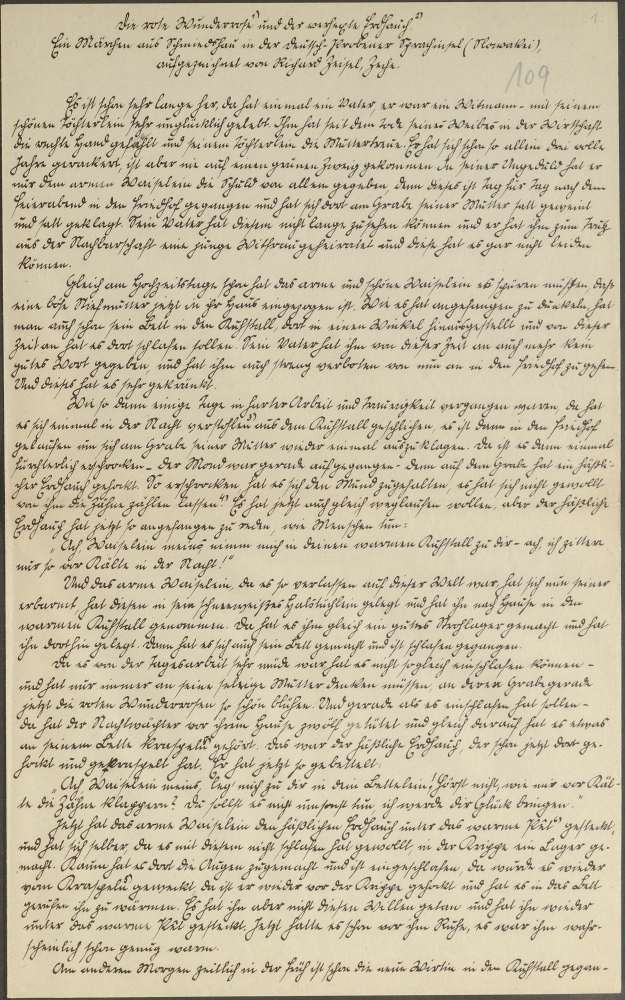 1.
Die rote Wunderrose¹⁾ und der verhexte Erdhauch²⁾
Ein Märchen aus Schmiedshau in der Deutsch-Probener Sprachinsel (Slowakei),
aufgezeichnet von Richard Zeisel, Zeche.
109
Es ist schon sehr lange her, da hat einmal ein Vater, er war ein Witmann – mit seinem
schönen Töchterlein sehr unglücklich gelebt. Ihm hat seit dem Tode seines Weibes in der Wirtschaft
die rechte Hand gefehlt und seinem Töchterlein die Muttertreue. Er hat sich schon so allein drei volle
Jahre gerackert, ist aber nie auf einen grünen Zweig gekommen. In seiner Ungeduld hat er
nur dem armen Waiselein die Schuld von allem gegeben, denn dieses ist Tag für Tag nach dem
Feierabend in den Friedhof gegangen und hat sich dort am Grabe seiner Mutter satt geweint
und satt geklagt. Sein Vater hat diesem nicht lange zusehen können und er hat ihm zum Trutz
aus der Nachbarschaft eine junge Witfrau geheiratet und diese hat es gar nicht leiden
können.
Gleich am Hochzeitstage schon hat das arme und schöne Waiselein es spüren müssen, daß
eine böse Stiefmutter jetzt in ihr Haus eingezogen ist. Wie es hat angefangen zu dunkeln, hat
man auch schon sein Bett in den Kuhstall, dort in einen Winkel hinausgestellt und von dieser
Zeit an hat es dort schlafen sollen. Sein Vater hat ihm von dieser Zeit an auch mehr kein
gutes Wort gegeben, und hat ihm auch streng verboten von nun an in den Friedhof zu gehen.
Und dieses hat es sehr gekränkt.
Wie so dann einige Tage in harter Arbeit und Traurigkeit vergangen waren, da hat
es sich einmal in der Nacht verstohlen aus dem Kuhstall geschlichen, es ist dann in den Friedhof
gelaufen um sich am Grabe seiner Mutter wieder einmal auszuklagen. Da ist es dann einmal
fürchterlich erschrocken – der Mond war gerade aufgegangen – denn auf dem Grabe hat ein häßli-
cher Erdhauch gehockt. So erschrocken hat es sich den Mund zugehalten, es hat sich nicht gewollt
von ihm die Zähne zählen lassen.³⁾ Es hat jetzt auch gleich weglaufen wollen, aber der häßliche
Erdhauch hat jetzt so angefangen zu reden, wie Menschen tun:
„Ach, Waiselein meins nimm mich in deinen warmen Kuhstall zu dir – ach, ich zittere
nur so vor Kälte in der Nacht!“
Und das arme Waiselein, da es so verlassen auf dieser Welt war, hat sich nun seiner
erbarmt, hat diesen in sein schneeweißes Halstüchlein gelegt und hat ihn nach Hause in den
warmen Kuhstall genommen. Da hat es ihm gleich ein gutes Strohlager gemacht und hat
ihn dorthin gelegt. Dann hat es sich auch sein Bett gemacht und ist schlafen gegangen.
Da es von der Tagesarbeit sehr müde war hat es nicht sogleich einschlafen können –
und hat nur immer an seine selige Mutter denken müssen, an deren Grabe gerade
jetzt die roten Wunderrosen so schön blühen. Und gerade als es einschlafen hat sollen –
da hat der Nachtwächter vor ihrem Hause zwölf getutet und gleich darauf hat es etwas
an seinem Bette kraspeln gehört. Das war der häßliche Erdhauch, der schon jetzt dort ge-
hockt und gekraspelt hat. Er hat jetzt so gebettelt:
„Ach, Waiselein meins, leg' mich zu dir in dein Bettelein! Hörst nicht, wie mir vor Käl-
te die Zähne klappern? Du sollst es nicht umsonst tun, ich werde dir Glück bringen.“
Jetzt hat das arme Waiselein den häßlichen Erdhauch unter das warme gesteckt,
und hat sich selber, da es mit diesem nicht schlafen hat gewollt in der Krippe ein Lager ge-
macht. Kaum hat es dort die Augen zugemacht und ist eingeschlafen, da wurde es wieder
vom Kraspeln geweckt da ist er wieder vor der Krippe gehockt und hat es in das Bett
gerufen ihn zu wärmen. Es hat ihm aber nicht diesen Willen getan und hat ihn wieder
unter das warme gesteckt. Jetzt hatte es schon vor ihm Ruhe, es war ihm wahr-
scheinlich schon genug warm.
Am anderen Morgen zeitlich in der Früh ist schon die neue Wirtin in den Kuhstall gegan-